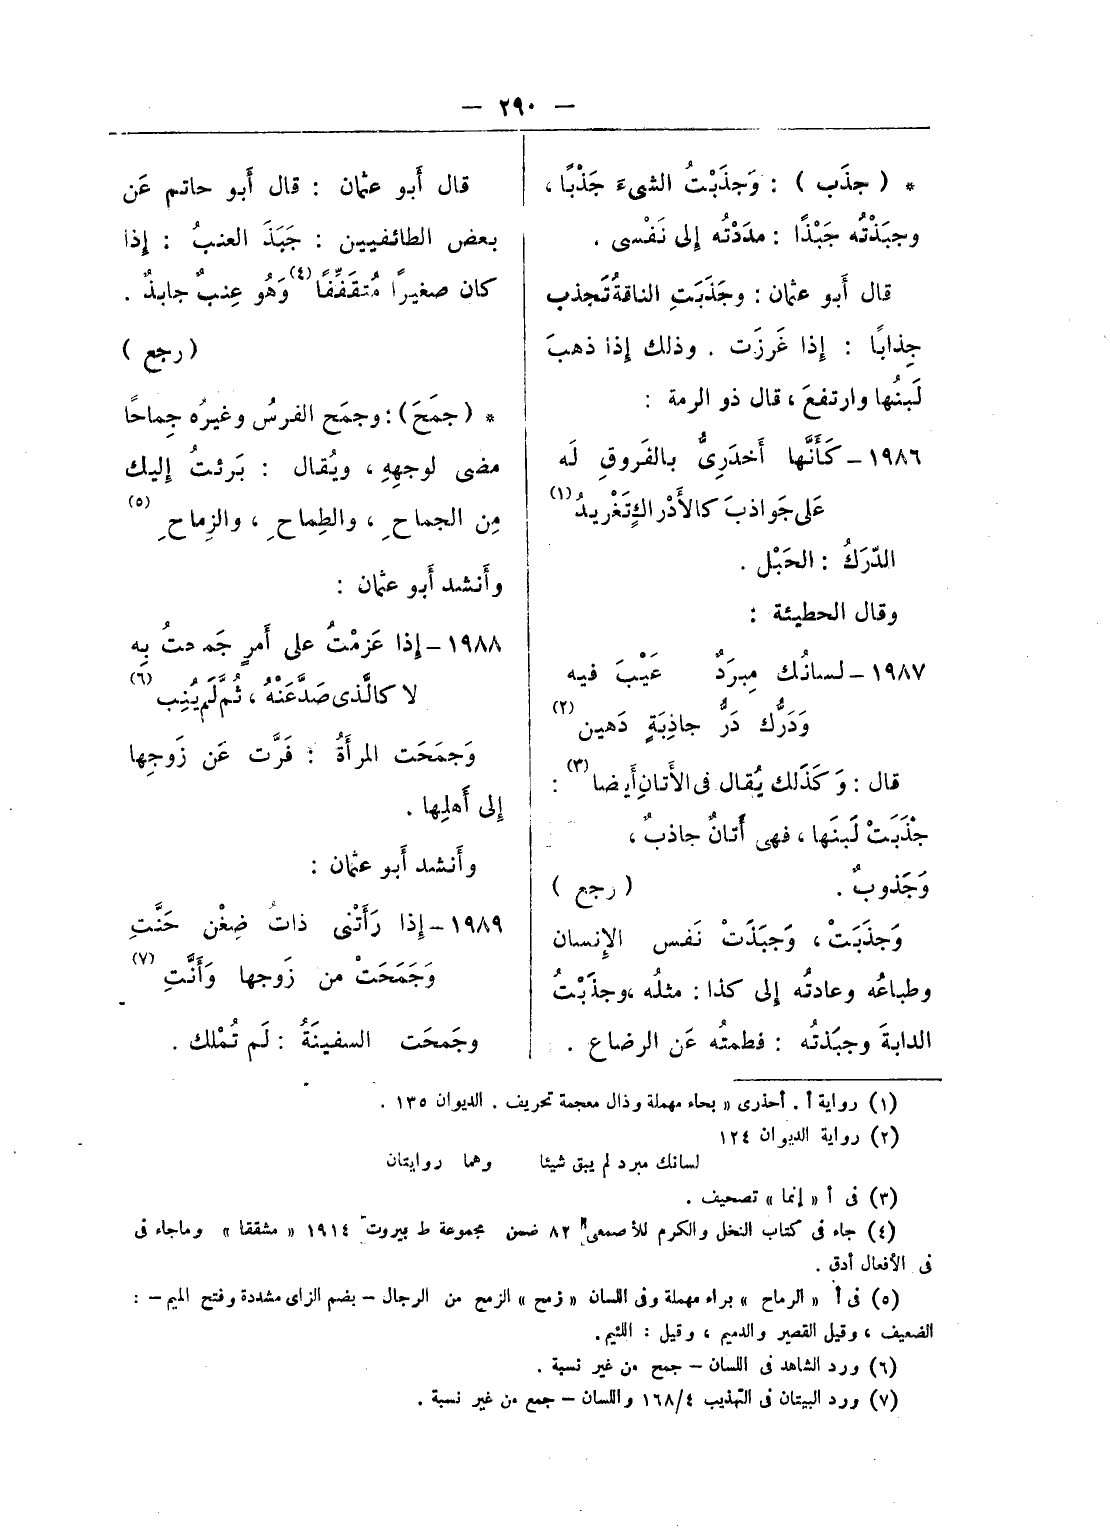 — ٢٩٠ —
* ( جذَب ) : وَجذَبْتُ الشىءَ جَذْبًا ،
وجبَذْتُه جَبْذًا : مدَدْتُه إلى نَفْسى .
قال أَبو عثمان : وجَذَبَتِ الناقةُ تَجذب
جِذابًا : إذا غَرزَت . وذلك إذا ذهبَ
لَبنُها وارتفعَ ، قال ذو الرمة :
١٩٨٦ – كَأَنَّها أَخدَرِىٌّ بالفَروقِ لَه
عَلى جَواذبَ كالأَدْراكِ تَغْريدُ (١)
الدّرَكُ : الحَبْل .
وقال الحطيئة :
١٩٨٧ – لسانُك مِبرَدٌ عَيْبَ فيه
وَدَرُّك دَرُّ جاذِبَةٍ دَهين (٢)
قال : وَكَذَلك يُقال فى الأَتانِ أَيضا (٣) :
جْذَبَتْ لَبنَها ، فهى أَتانٌ جاذبٌ ،
وَجَذوبٌ . ( رجع )
وَجذَبَتْ ، وَجبَذَتْ نَفس الإنسان
وطباعُه وعادتُه إلى كذا : مثلُه ، وجذَبْتُ
الدابةَ وجبَذتُه : فطمتُه عَن الرضاع .
قال أَبو عثمان : قال أَبو حاتم عَن
بعض الطائفيين : جَبَذَ العنبُ : إذا
كان صغيراً مُتقَفِّفًا (٤) وَهُو عِنبٌ جابذٌ .
( رجع )
* ( جمَحَ ) : وجمَح الفرسُ وغيرُه جِماحًا
مضى لوجهِهِ ، ويُقال : بَرئتُ إليك
مِن الجماح ِ ، والطِماح ِ ، والزِماح ِ (٥)
وأَنشد أَبو عثمان :
١٩٨٨ – إذا عَزمْتُ على أَمرٍ جَمحتُ بِه
لا كالَّذى صَدَّ عَنْهُ ، ثُمَّ لَم يُنِب (٦)
وَجمَحَت المرأَةُ : فَرَّت عَن زَوجِها
إلى أَهلِها .
وأَنشد أَبو عثمان :
١٩٨٩ – إذا رَأَتْنى ذاتُ ضِغْن حَنَّتِ
وَجَمَحَتْ من زَوجها وَأَنَّتِ (٧)
وجَمحَت السفينَةُ : لَم تُمْلك .
(١) رواية أ . أحذرى « بحاء مهملة وذال معجمة تحريف . الديوان ١٣٥ .
(٢) رواية الديوان ١٢٤
لسانك مبرد لم يبق شيئا وهما روايتان
(٣) فى أ « إنما » تصحيف .
(٤) جاء فى كتاب النخل والكرم للأصمعى ٨٢ ضمن مجموعة ط بيروت ١٩١٤ « مشققا » وماجاء فى
فى الأفعال أدق .
(٥) فى أ « الرماح » براء مهملة وفى اللسان « زمح » الزمح من الرجال – بضم الزاى مشددة وفتح الميم – :
الضعيف ، وقيل القصير والدميم ، وقيل : اللئيم .
(٦) ورد الشاهد فى اللسان – جمح من غير نسبة .
(٧) ورد البيتان فى التهذيب ٤/١٦٨ واللسان – جمع من غير نسبة .